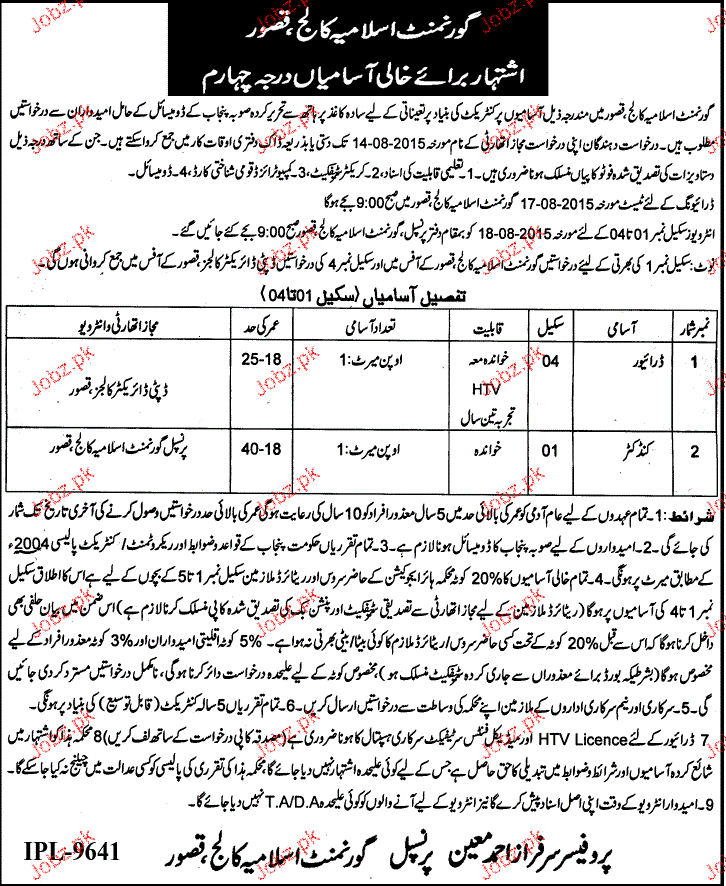 گورنمنٹ اسلامیہ کالج، قصور
اشتہار برائے خالی آسامیاں درجہ چہارم
گورنمنٹ اسلامیہ کالج، قصور میں مندرجہ ذیل آسامیوں پر کنٹریکٹ کی بنیاد پر تعیناتی کے لیے سادہ کاغذ پر ہاتھ سے تحریر کردہ صوبہ پنجاب کے ڈومیسائل کے حامل امیدواران سے درخواستیں
مطلوب ہیں۔ درخواست دہندگان اپنی درخواست مجاز اتھارٹی کے نام مورخہ 14-08-2015 تک دستی یا بذریعہ ڈاک دفتری اوقات کار میں جمع کروا سکتے ہیں۔ جن کے ساتھ درجہ ذیل
دستاویزات کی تصدیق شدہ فوٹو کاپیاں منسلک ہونا ضروری ہیں۔ 1۔ تعلیمی قابلیت کی اسناد، 2۔ کریکٹر سرٹیفکیٹ، 3۔ کمپیوٹرائزڈ قومی شناختی کارڈ، 4۔ ڈومیسائل۔
ڈرائیونگ کے لئے ٹیسٹ مورخہ 17-08-2015 گورنمنٹ اسلامیہ کالج، قصور میں صبح 9:00 بجے ہوگا
انٹرویوز سکیل نمبر 01 تا 04 کے لئے مورخہ 18-08-2015 کو بمقام دفتر پرنسپل، گورنمنٹ اسلامیہ کالج، قصور صبح 9:00 بجے کئے جائیں گے۔
نوٹ: سکیل نمبر 1 کی بھرتی کے لیئے درخواستیں گورنمنٹ اسلامیہ کالج، قصور کے آفس میں اور سکیل نمبر 4 کی درخواستیں ڈپٹی ڈائریکٹر کالجز، قصور کے آفس میں جمع کروانی ہوں گی۔
تفصیل آسامیاں (سکیل 01 تا 04)
نمبر شمار آسامی سکیل قابلیت تعداد آسامی عمر کی حد مجاز اتھارٹی و انٹرویو
1 ڈرائیور 04 خواندہ معہ HTV تجربہ تین سال اوپن میرٹ: 1 25-18 ڈپٹی ڈائریکٹر کالجز، قصور
2 کنڈکٹر 01 خواندہ اوپن میرٹ: 1 40-18 پرنسپل گورنمنٹ اسلامیہ کالج، قصور
شرائط: 1۔ تمام عہدوں کے لیے عام آدمی کو عمر کی بالائی حد میں 5 سال معذور افراد کو 10 سال کی رعایت ہوگی عمر کی بالائی حد درخواستیں وصول کرنے کی آخری تاریخ تک شمار
کی جائے گی۔ 2۔ امیدواروں کے لیے صوبہ پنجاب کا ڈومیسائل ہونا لازم ہے۔ 3۔ تمام تقرریاں حکومت پنجاب کے قواعد و ضوابط اور ریکروٹمنٹ / کنٹریکٹ پالیسی 2004ء
کے مطابق میرٹ پر ہونگی۔ 4۔ تمام خالی آسامیوں کا 20% کوٹہ محکمہ ہائر ایجوکیشن کے حاضر سروس اور ریٹائرڈ ملازمین سکیل نمبر 1 تا 5 کے بچوں کے لیے ہے اس کا اطلاق سکیل
نمبر 1 تا 4 کی آسامیوں پر ہوگا (ریٹائرڈ ملازمین کے لیے مجاز اتھارٹی سے تصدیقی سرٹیفکیٹ اور پنشن بک کی تصدیق شدہ کاپی منسلک کرنا لازم ہے) اس ضمن میں بیان حلفی بھی
داخل کرنا ہوگا کہ اس سے قبل 20% کوٹہ کے تحت کسی حاضر سروس / ریٹائرڈ ملازم کا کوئی بیٹا / بیٹی بھرتی نہ ہوا ہے۔ 5% کوٹہ اقلیتی امیدواران اور 3% کوٹہ معذور افراد کے لیے
مخصوص ہوگا (بشرطیکہ بورڈ برائے معذوراں سے جاری کردہ سرٹیفکیٹ منسلک ہو)، مخصوص کوٹہ کے لیے علیحدہ درخواست دائر کرنا ہوگی، نامکمل درخواستیں مسترد کر دی جائیں
گی۔ 5۔ سرکاری اور نیم سرکاری اداروں کے ملازمین اپنے محکمہ کی وساطت سے درخواستیں ارسال کریں۔ 6۔ تمام تقرریاں 5 سالہ کنٹریکٹ (قابل توسیع) کی بنیاد پر ہونگی۔
7 ڈرائیور کے لئے HTV Licence اور میڈیکل فٹنس سرٹیفکیٹ سرکاری ہسپتال کا ہونا ضروری ہے (مصدقہ کاپی درخواست کے ساتھ لف کریں) 8 محکمہ ہذا کو اشتہار میں
شائع کردہ آسامیوں اور شرائط و ضوابط میں تبدیلی کا حق حاصل ہے جس کے لیے کوئی علیحدہ اشتہار نہیں دیا جائے گا، محکمہ ہذا کی تقرری کی پالیسی کو کسی عدالت میں چیلنج نہ کیا جا سکے گا۔
9۔ امیدوار انٹرویو کے وقت اپنی اصل اسناد پیش کرے گا نیز انٹرویو کے لیے آنے والوں کو کوئی علیحدہ T.A/D.A نہیں دیا جائے گا۔
پروفیسر سرفراز احمد معین پرنسپل گورنمنٹ اسلامیہ کالج، قصور
IPL-9641
Jobz.pk